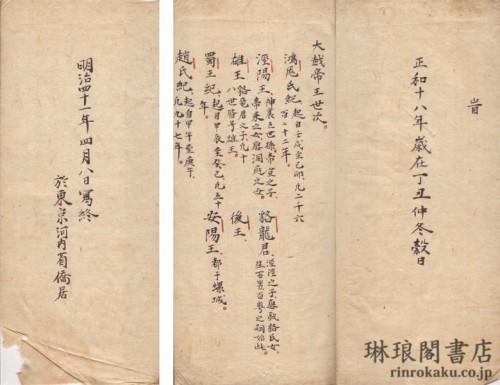 旹
正和十八年歲在丁丑仲冬穀日
大越帝王世次
鴻厖氏紀、起自壬戌至己卯、凡二千六
百二十二年。
涇陽王、神農三世孫帝宜之子、
娶洞庭之女。
貉龍君、
生百男百粤之祖始此。
雄王、貉龍君之子、凡十
八世皆号雄王。
後王、
蜀王紀、起自甲辰至癸巳、凡五十
年。
安陽王、都于螺城。
趙氏紀、起自甲午至庚午、
凡九十七年。
明治四十一年四月八日寫終
於東京河内省僑居
琳琅閣書店
rinrokaku.co.jp